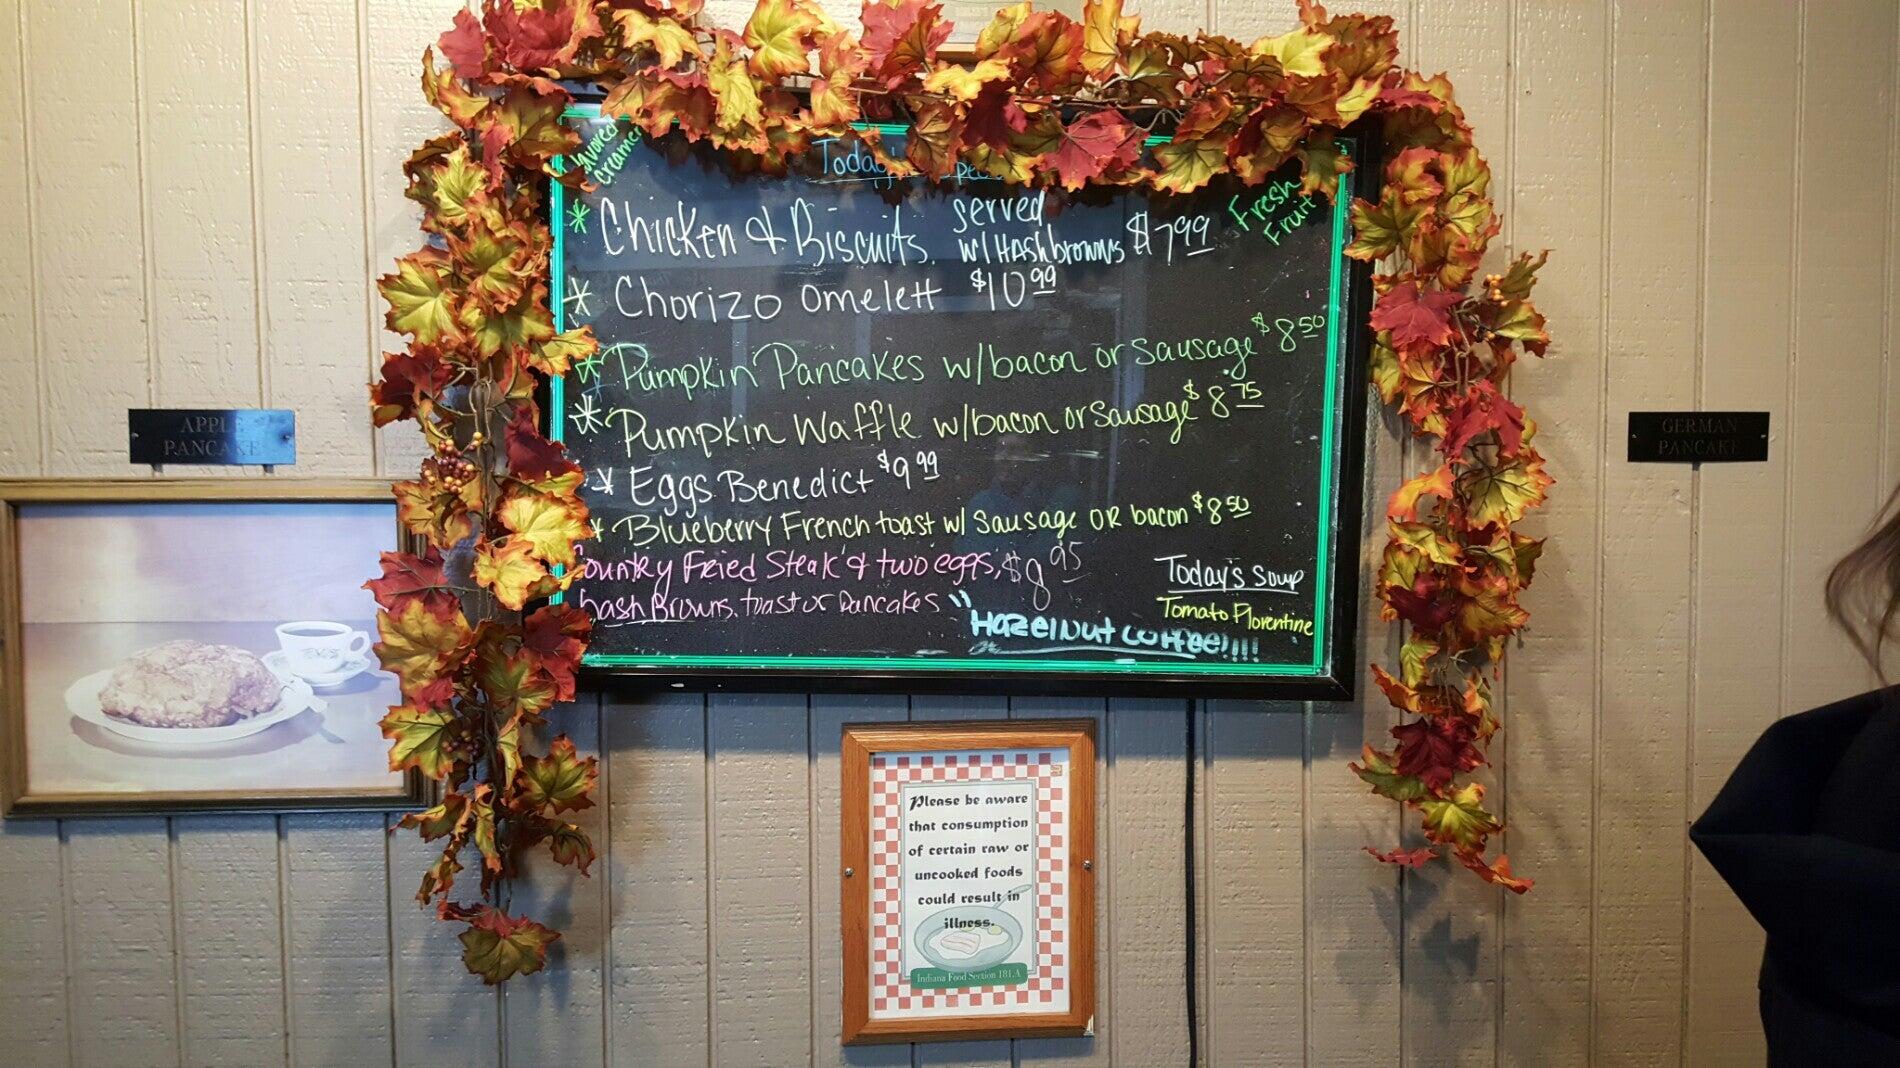 Creamer
* Chicken & Biscuits. served w/ Hashbrowns $7.99
Fresh
Fruit
* Chorizo omelett $10.99
* Pumpkin Pancakes w/bacon or sausage $8.50
* Pumpkin Waffle w/bacon or sausage $8.75
* Eggs Benedict $9.99
* Blueberry French toast w/ sausage OR bacon $8.50
Country Fried Steak & two eggs, $8.95
hash Browns. toast or pancakes
Today's Soup
Tomato Florentine
Hazelnut coffee!!!!
APPLE
PANCAKE
GERMAN
PANCAKE
Please be aware
that consumption
of certain raw or
uncooked foods
could result in
illness.
Indiana Food Section 181.A